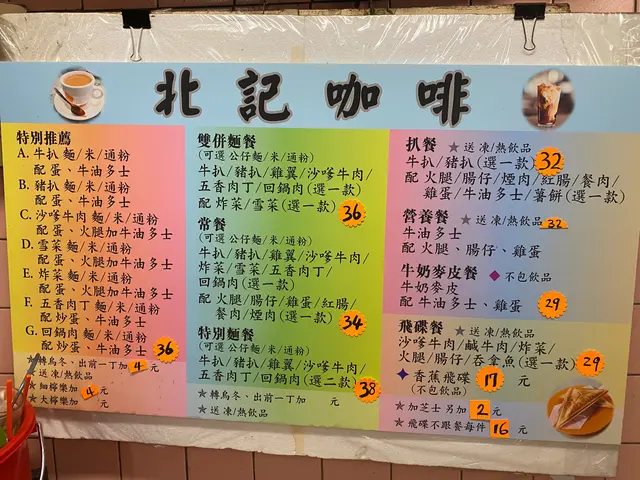 北記咖啡
特別推薦
A. 牛扒 麵/米/通粉
配蛋、牛油多士
B. 豬扒 麵/米/通粉
配蛋、牛油多士
C. 沙嗲牛肉 麵/米/通粉
配蛋、火腿加牛油多士
D. 雪菜 麵/米/通粉
配蛋、火腿加牛油多士
E. 炸菜 麵/米/通粉
配蛋、火腿加牛油多士
F. 五香肉丁 麵/米/通粉
配炒蛋、牛油多士
G. 回鍋肉 麵/米/通粉
配炒蛋、牛油多士 36
★轉烏冬、出前一丁加 4 元
★送凍/熱飲品
★細檸樂加 4 元
★大檸樂加 元
雙併麵餐
(可選 公仔麵/米/通粉)
牛扒/豬扒/雞翼/沙嗲牛肉/
五香肉丁/回鍋肉(選一款)
配 炸菜/雪菜(選一款) 36
常餐
(可選 公仔麵/米/通粉)
牛扒/豬扒/雞翼/沙嗲牛肉/
炸菜/雪菜/五香肉丁/
回鍋肉(選一款)
配 火腿/腸仔/雞蛋/紅腸/
餐肉/煙肉(選一款) 34
特別麵餐
(可選 公仔麵/米/通粉)
牛扒/豬扒/雞翼/沙嗲牛肉/
五香肉丁/回鍋肉(選二款) 38
★轉烏冬、出前一丁加 元
★送凍/熱飲品
扒餐 ★送 凍/熱飲品
牛扒/豬扒(選一款) 32
配 火腿/腸仔/煙肉/紅腸/餐肉/
雞蛋/牛油多士/薯餅(選一款)
營養餐 ★送 凍/熱飲品 32
牛油多士
配 火腿、腸仔、雞蛋
牛奶麥皮餐 ◆不包飲品
牛奶麥皮
配 牛油多士、雞蛋 29
飛碟餐 ★送 凍/熱飲品
沙嗲牛肉/鹹牛肉/炸菜/
火腿/腸仔/吞拿魚(選一款) 29
◆香蕉飛碟 17 元
(不包飲品)
★加芝士 另加 2 元
★飛碟不跟餐每件 16 元